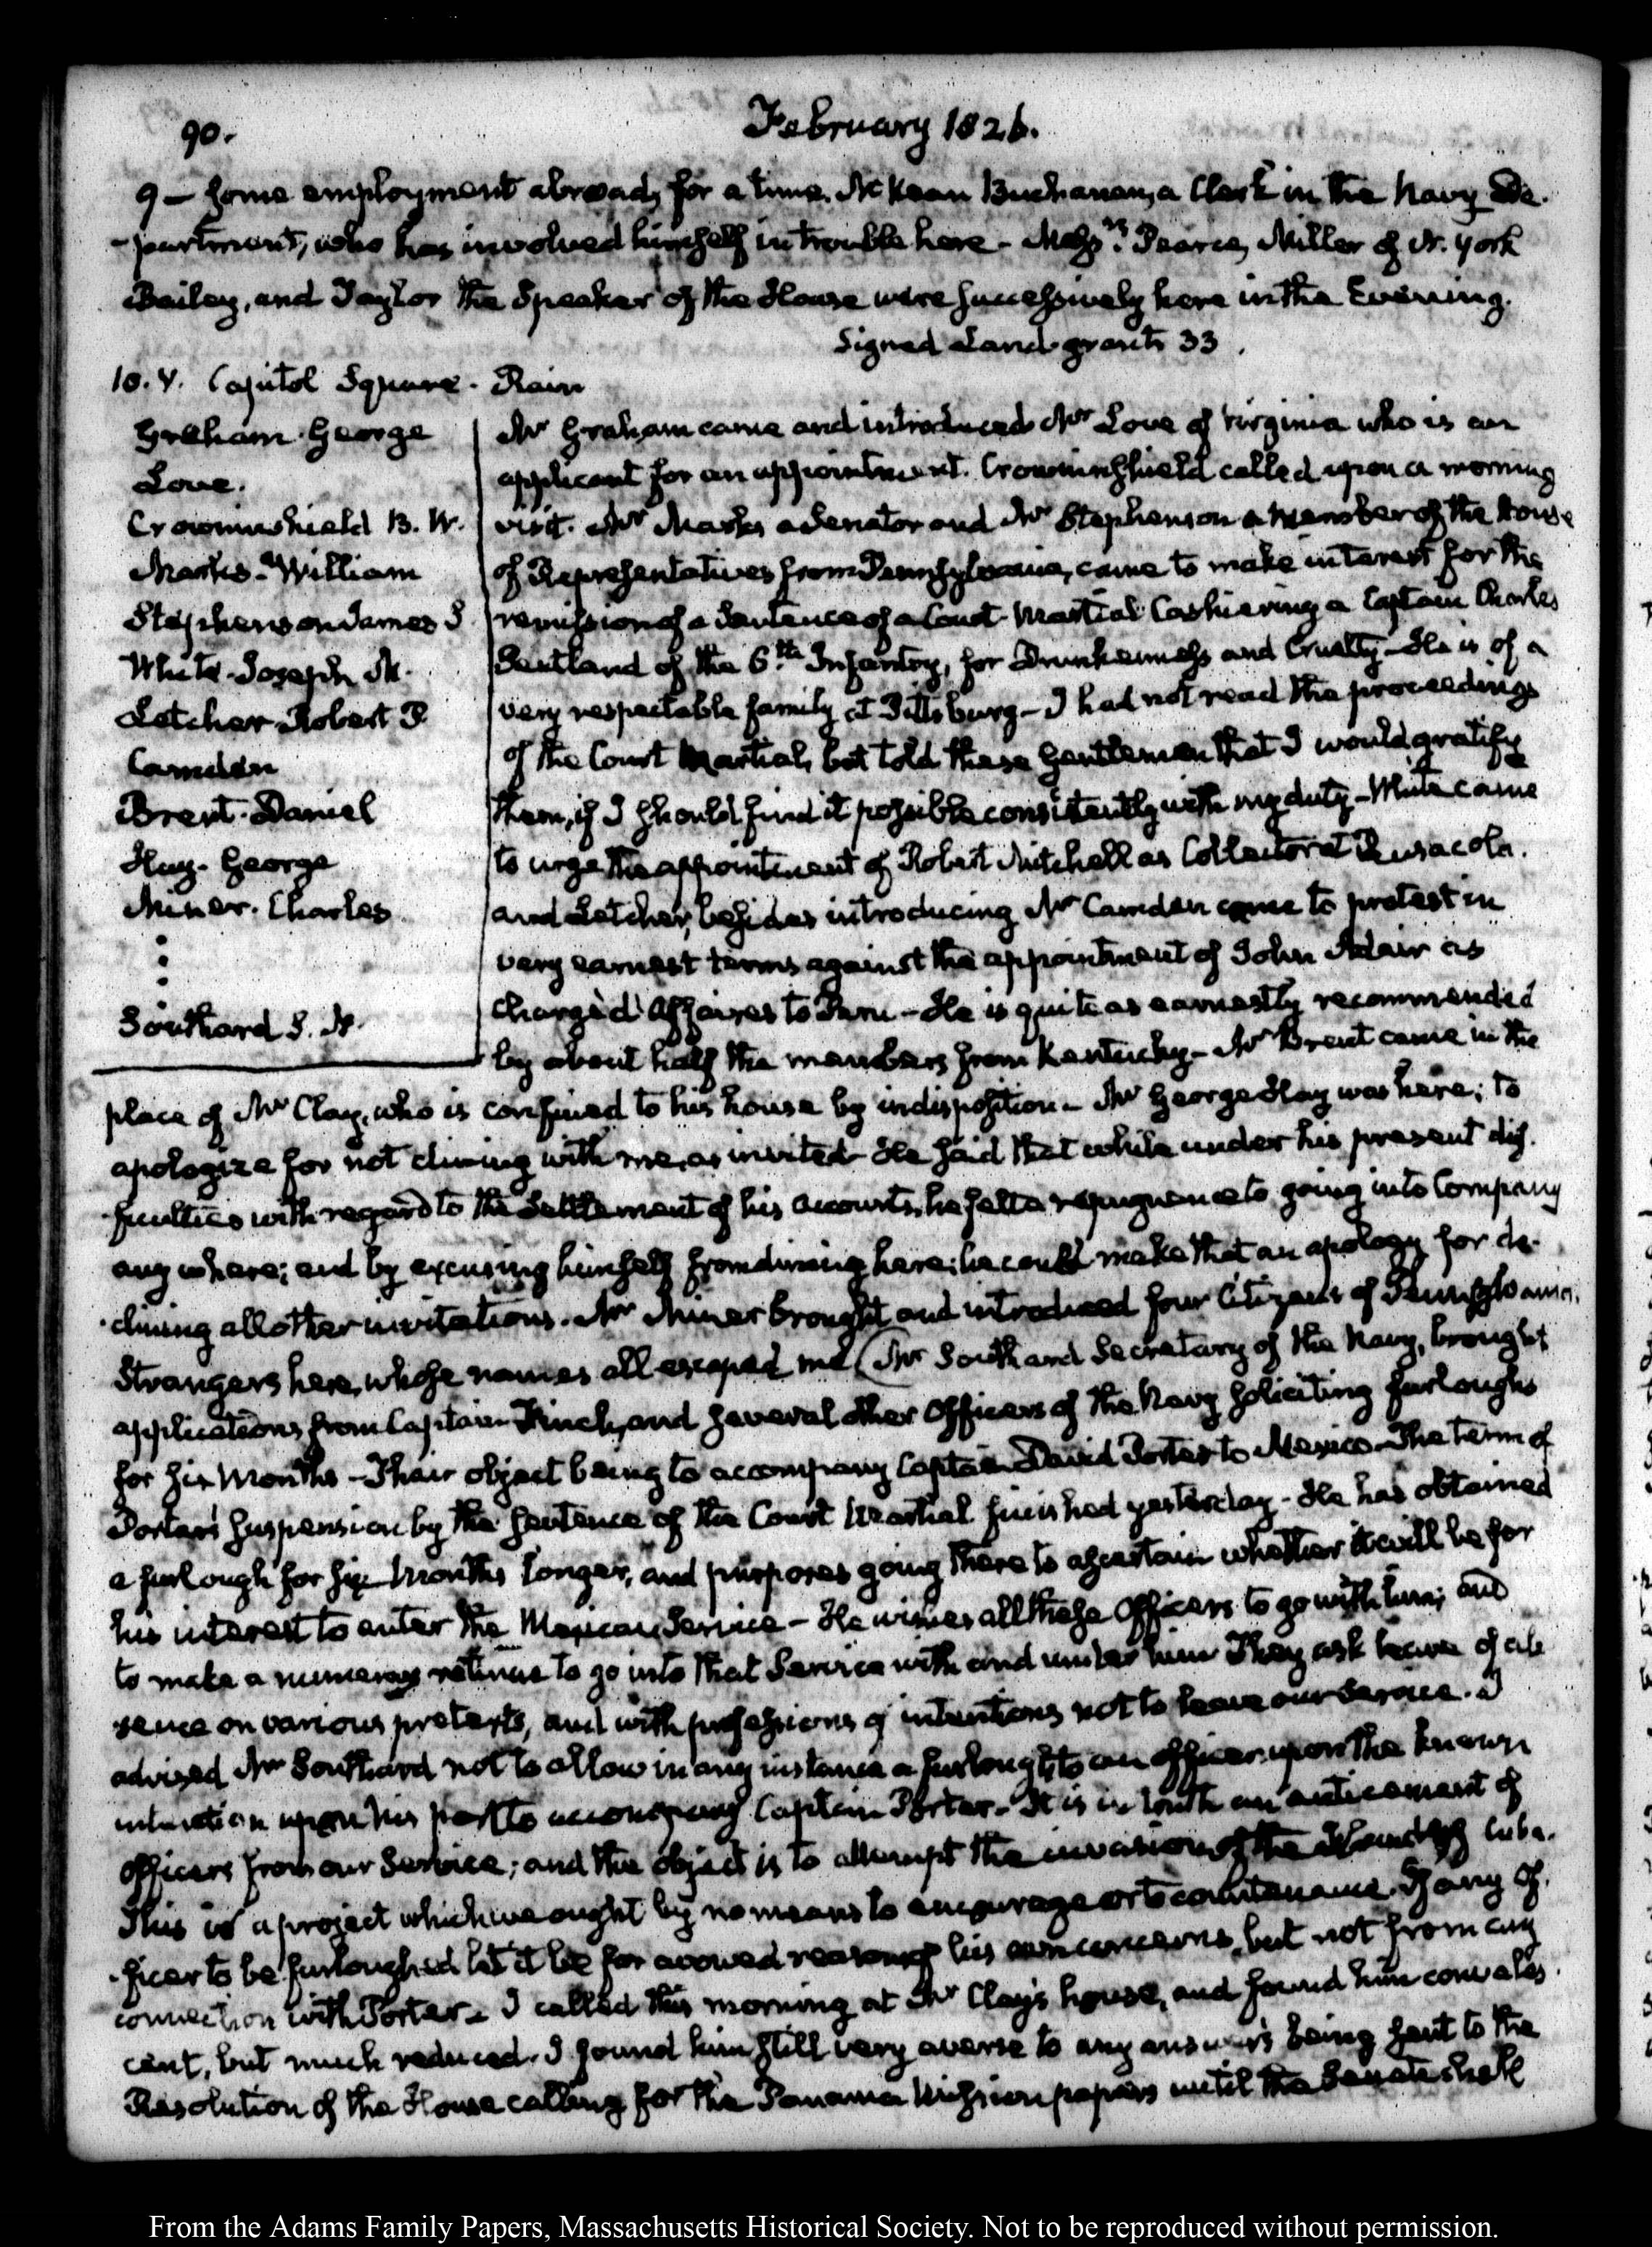 90.
February 1826.
9 — some employment abroad, for a time. McKean Buchanan, a Clerk in the Navy De-
-partment, who has involved himself in trouble here — Messrs. Pearce, Miller of N. York
Bailey, and Taylor the Speaker of the House were successively here in the Evening.
Signed Land-grants 33.
10. V. Capitol Square. Rain
Graham. George
Love.
Crowninshield B. W.
Marks. William
Stephenson James S
White. Joseph M.
Letcher Robert P
Camden
Brent. Daniel
Hay. George
Miner. Charles
:
:
Southard S. L.
Mr Graham came and introduced Mr Love of Virginia who is an
applicant for an appointment. Crowninshield called upon a morning
visit. Mr Marks a Senator and Mr Stephenson a Member of the House
of Representatives from Pennsylvania, came to make interest for the
remission of a Sentence of a Court-Martial Cashiering a Captain Charles
Pentland of the 6th Infantry, for Drunkenness and Cruelty — He is of a
very respectable family at Pittsburg — I had not read the proceedings
of the Court Martial, but told these Gentlemen that I would gratify
them, if I should find it possible consistently with my duty — White came
to urge the appointment of Robert Mitchell as Collector at Pensacola.
and Letcher, besides introducing Mr Camden came to protest in
very earnest terms against the appointment of John Adair as
Chargé d'Affaires to Peru — He is quite as earnestly recommended
by about half the members from Kentucky — Mr Brent came in the
place of Mr Clay, who is confined to his house by indisposition — Mr George Hay was here; to
apologize for not dining with me, as invited — He said that while under his present dif-
-ficulties with regard to the Settlement of his accounts, he felt a repugnance to going into Company
any where; and by excusing himself from dining here; he could make that an apology for de-
-clining all other invitations. Mr Miner brought and introduced four Citizens of Pennsylvania,
Strangers here, whose names all escaped me (Mr Southard Secretary of the Navy, brought
applications from Captain Finch, and several other Officers of the Navy soliciting furloughs
for six Months — Their object being to accompany Captain David Porter to Mexico — The term of
Porter's suspension by the sentence of the Court Martial finished yesterday — He has obtained
a furlough for six Months longer, and purposes going there to ascertain whether it will be for
his interest to enter the Mexican Service — He wishes all these Officers to go with him; and
to make a numerous retinue to go into that Service with and under him They ask leave of ab-
sence on various pretexts, and with professions of intentions not to leave our Service. I
advised Mr Southard not to allow in any instance a furlough to an officer upon the known
intention upon his part to accompany Captain Porter — It is in truth an enticement of
officers from our Service; and the object is to attempt the invasion of the Island of Cuba.
This is a project which we ought by no means to encourage or to countenance. If any of-
-ficer to be furloughed let it be for avowed reasons of his own concerns, but not from any
connection with Porter — I called this morning at Mr Clay's house, and found him convales-
cent, but much reduced. I found him still very averse to any answers being sent to the
Resolution of the House calling for the Panama Mission papers until the Senate shall
From the Adams Family Papers, Massachusetts Historical Society. Not to be reproduced without permission.